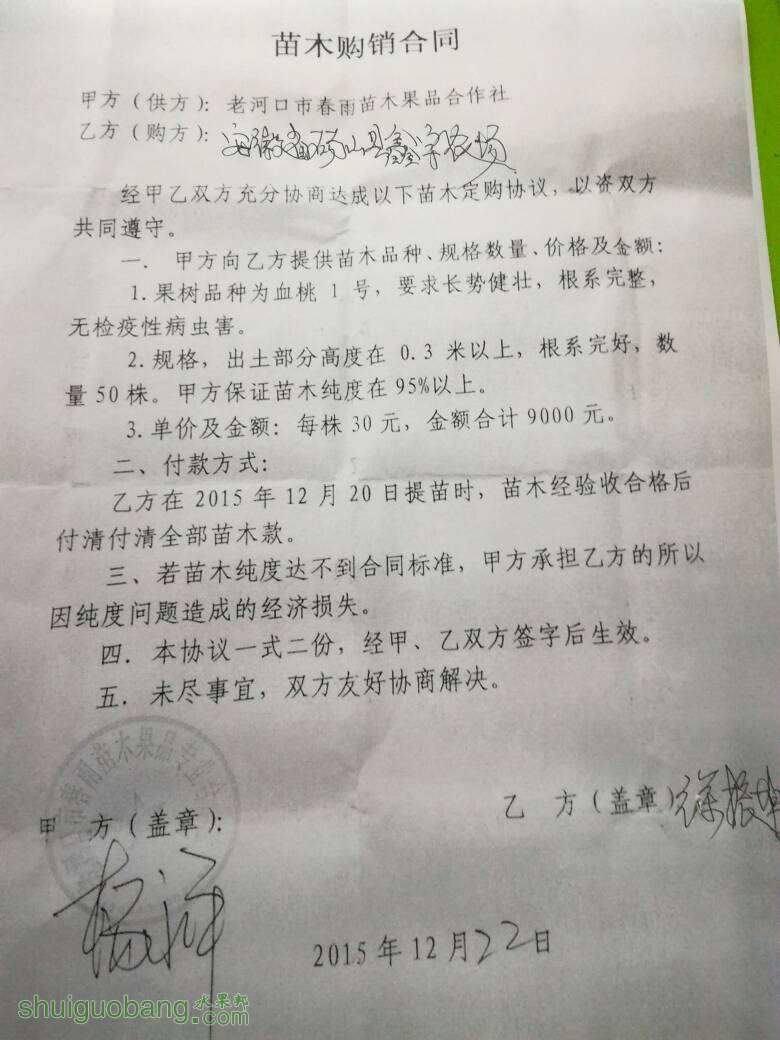 苗木购销合同
甲方（供方）：老河口市春雨苗木果品合作社
乙方（购方）：安徽省砀山县鑫宇农场
经甲乙双方充分协商达成以下苗木定购协议，以资双方
共同遵守。
一. 甲方向乙方提供苗木品种、规格数量、价格及金额：
1.果树品种为血桃 1 号，要求长势健壮，根系完整，
无检疫性病虫害。
2.规格，出土部分高度在 0.3 米以上，根系完好，数
量 50 株。甲方保证苗木纯度在 95%以上。
3.单价及金额：每株 30 元，金额合计 9000 元。
二、付款方式：
乙方在 2015 年 12 月 20 日提苗时，苗木经验收合格后
付清付清全部苗木款。
三、若苗木纯度达不到合同标准，甲方承担乙方的所以
因纯度问题造成的经济损失。
四．本协议一式二份，经甲、乙双方签字后生效。
五．未尽事宜，双方友好协商解决。
乙 方（盖章）
甲 方（盖章）：
2015 年 12 月 22 日
水果邦
shuiguobang.com